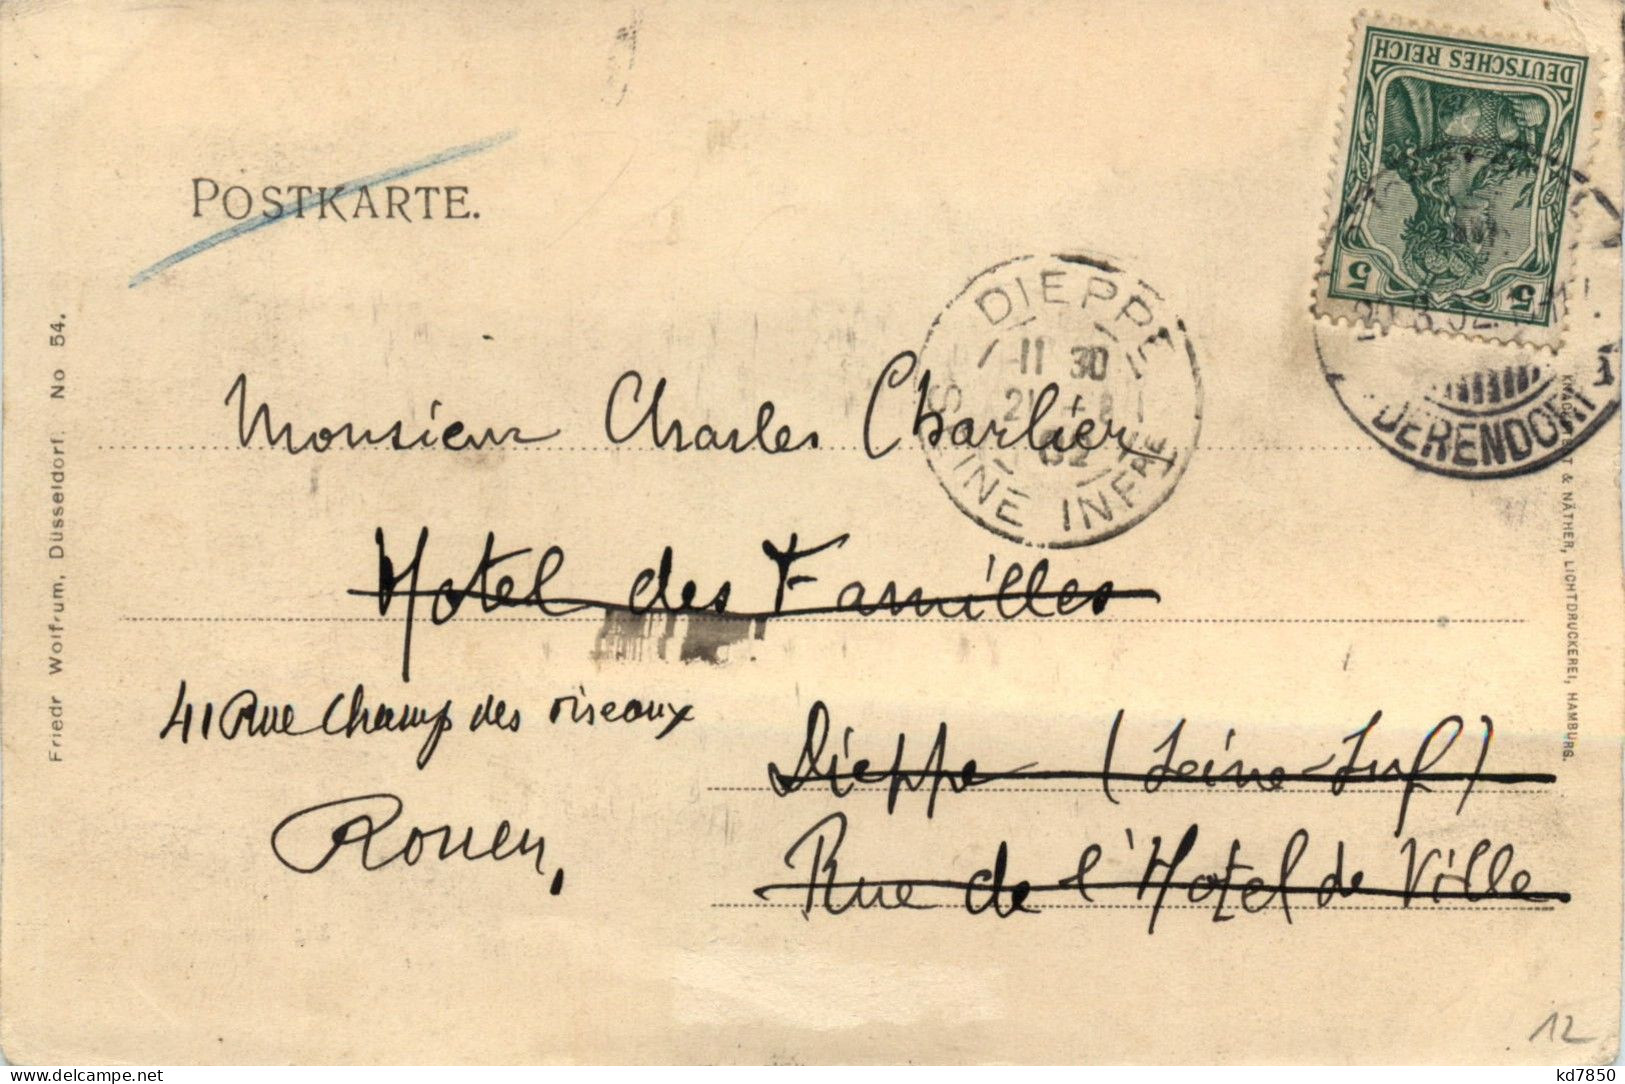 DEUTSCHES REICH
5 5
POSTKARTE.
DIEPPE
11 30
21
02
SEINE INFRE
DERENDORF
Monsieur Charles Charlier
Hotel des Familles
41 Rue Champ des oiseaux
Rouen,
Dieppe (Seine-Inf)
Rue de l'Hotel de Ville
Friedr Wolfrum, Düsseldorf. No 54.
& NÄTHER, LICHTDRUCKEREI, HAMBURG.
12
delcampe.net
kd7850